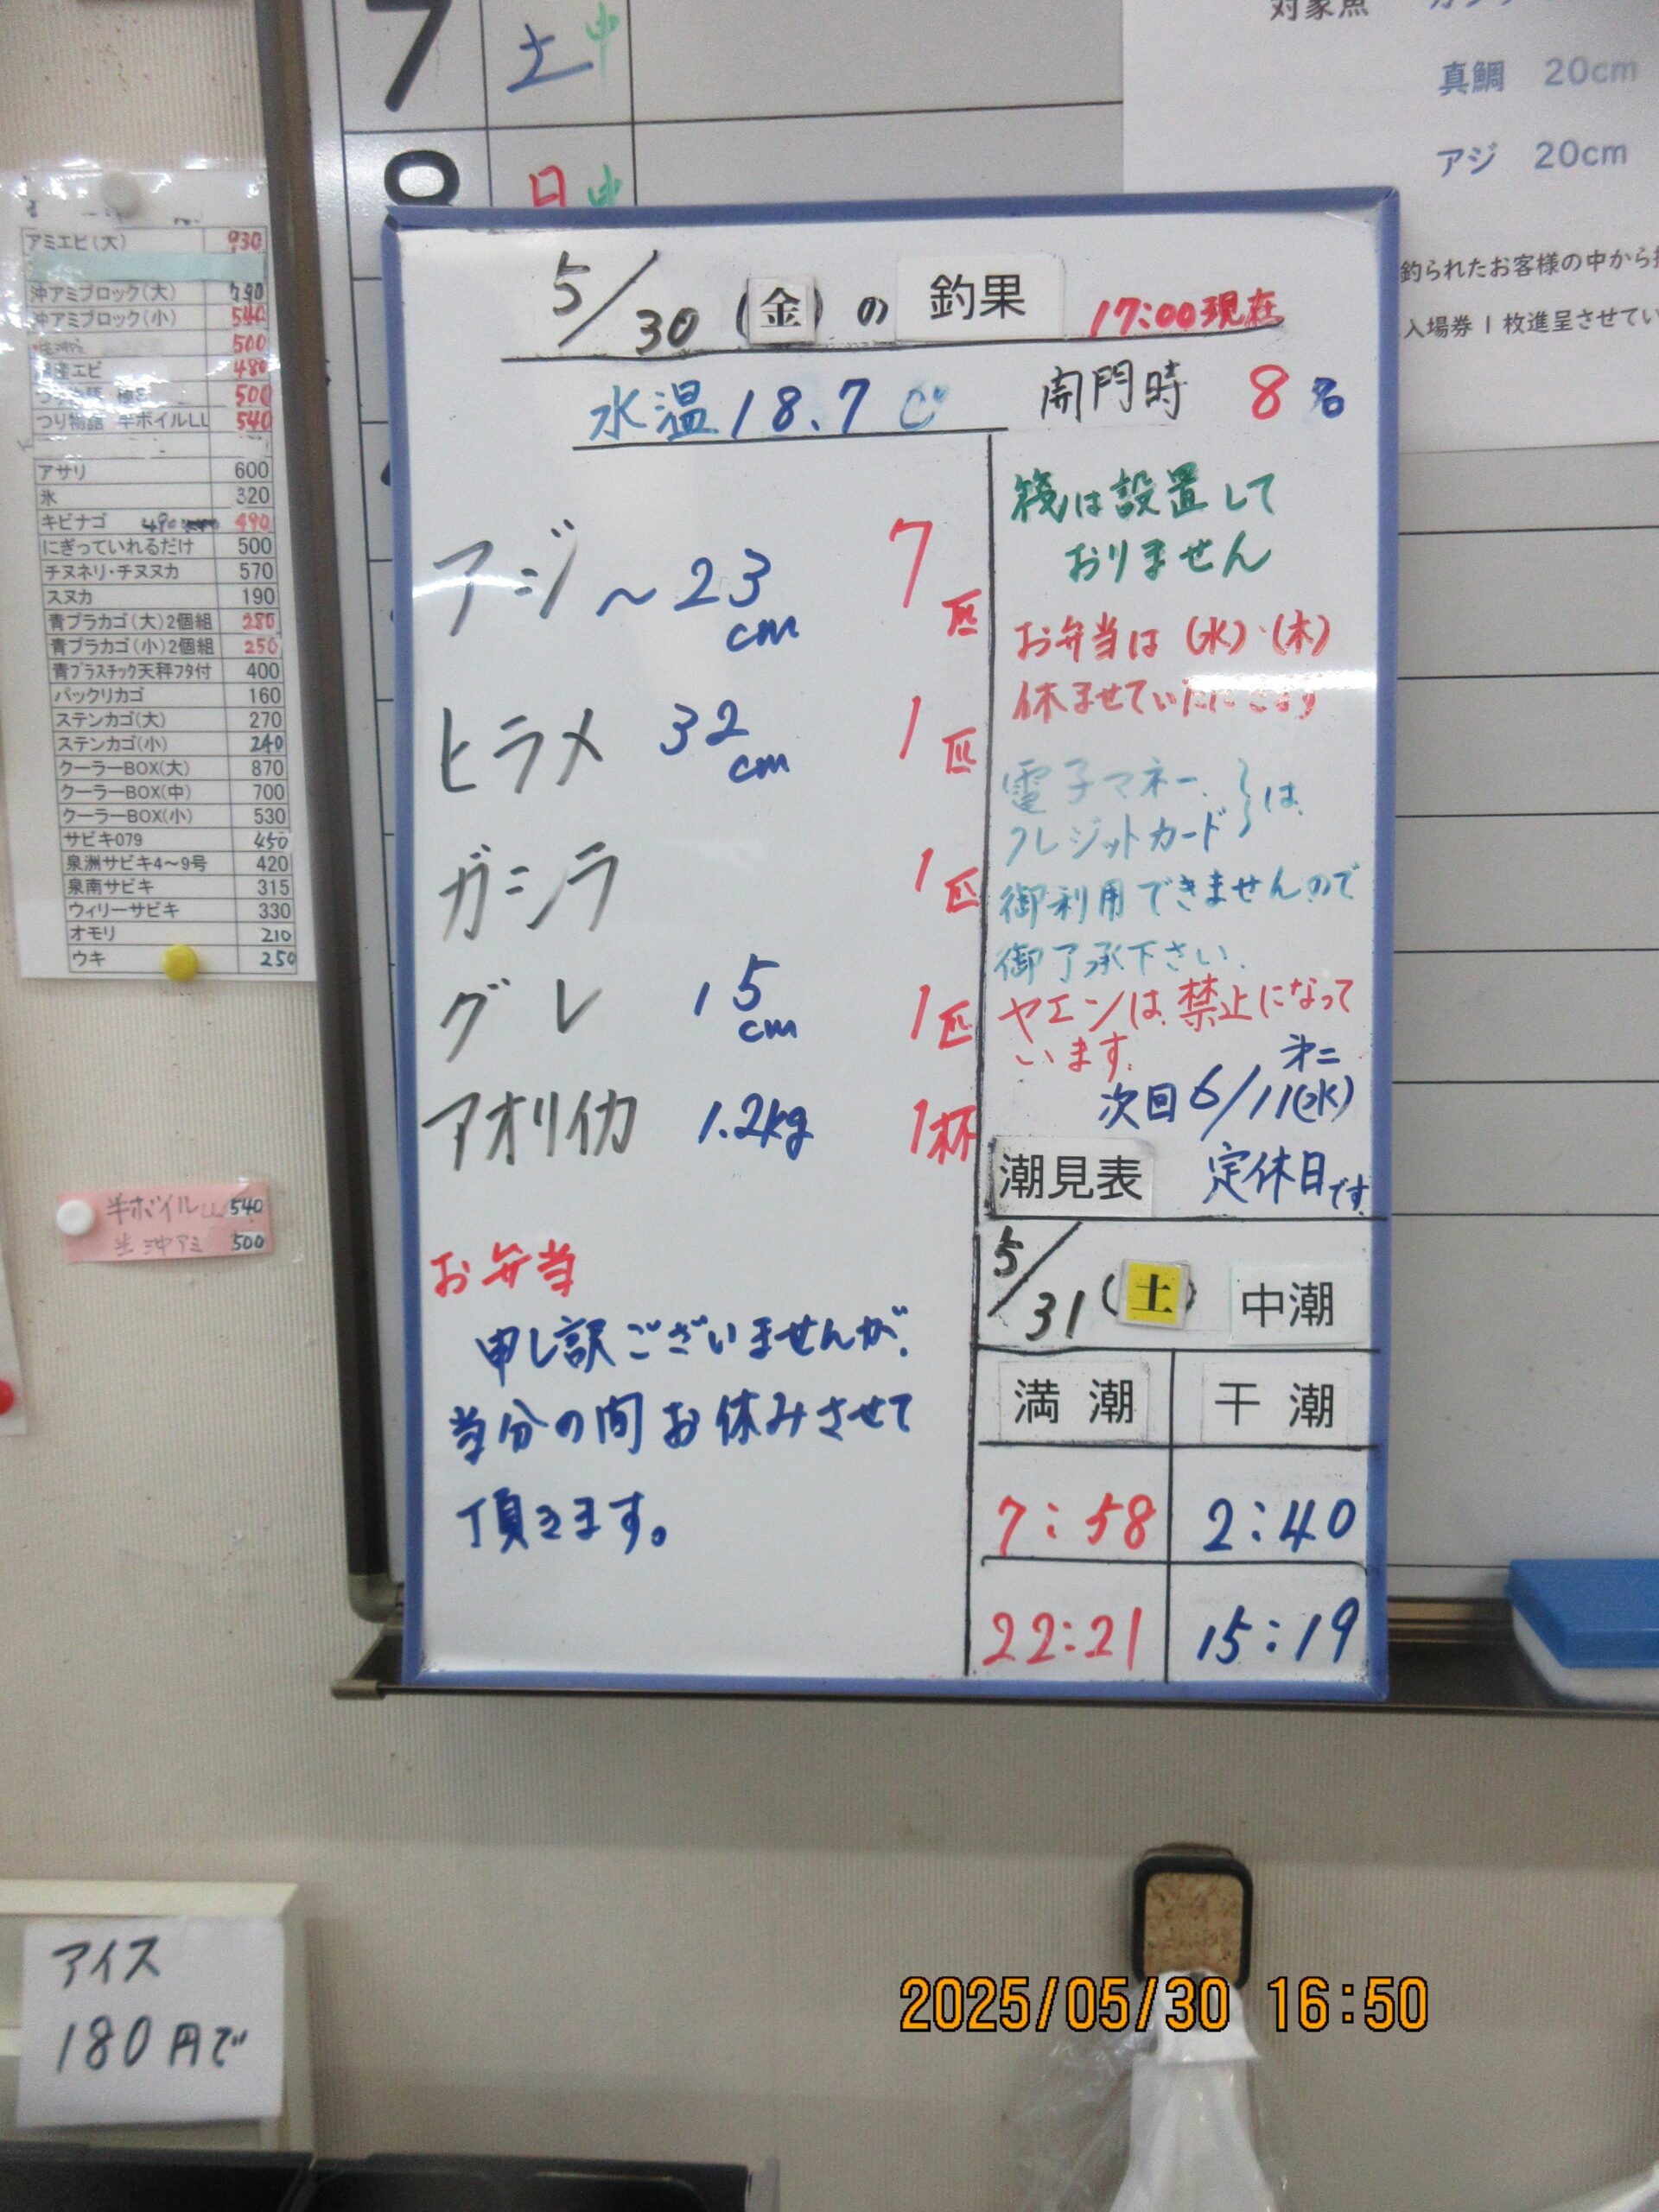 7 土 中
8 日 中
対象魚
真鯛 20cm
アジ 20cm
釣られたお客様の中から
入場券1枚進呈させてい
アミエビ(大) 930
沖アミブロック(大) 790
沖アミブロック(小) 540
500
エビ 480
500
つり物語 半ボイルLL 540
アサリ 600
氷 320
キビナゴ 490
にぎっていれるだけ 500
チヌネリ・チヌヌカ 570
スヌカ 190
青プラカゴ(大)2個組 280
青プラカゴ(小)2個組 250
青プラスチック天秤フタ付 400
パックリカゴ 160
ステンカゴ(大) 270
ステンカゴ(小) 240
クーラーBOX(大) 870
クーラーBOX(中) 700
クーラーBOX(小) 530
サビキ079 450
泉洲サビキ4~9号 420
泉南サビキ 315
ウィリーサビキ 330
オモリ 210
ウキ 250
半ボイルLL 540
生沖アミ 500
5/30(金)の釣果 17:00現在
水温18.7℃ 開門時 8名
アジ ~23cm 7匹
ヒラメ 32cm 1匹
ガシラ 1匹
グレ 15cm 1匹
アオリイカ 1.2kg 1杯
お弁当
申し訳ございませんが、
当分の間お休みさせて
頂きます。
筏は設置して
おりません
お弁当は(水)・(木)
休ませていただきます
電子マネー、
クレジットカード は、
御利用できませんので
御了承下さい。
ヤエンは、禁止になって
います。
次回 6/11(水) 第二
定休日です
潮見表
5/31(土) 中潮
満潮 干潮
7:58 2:40
22:21 15:19
アイス
180円で
2025/05/30 16:50